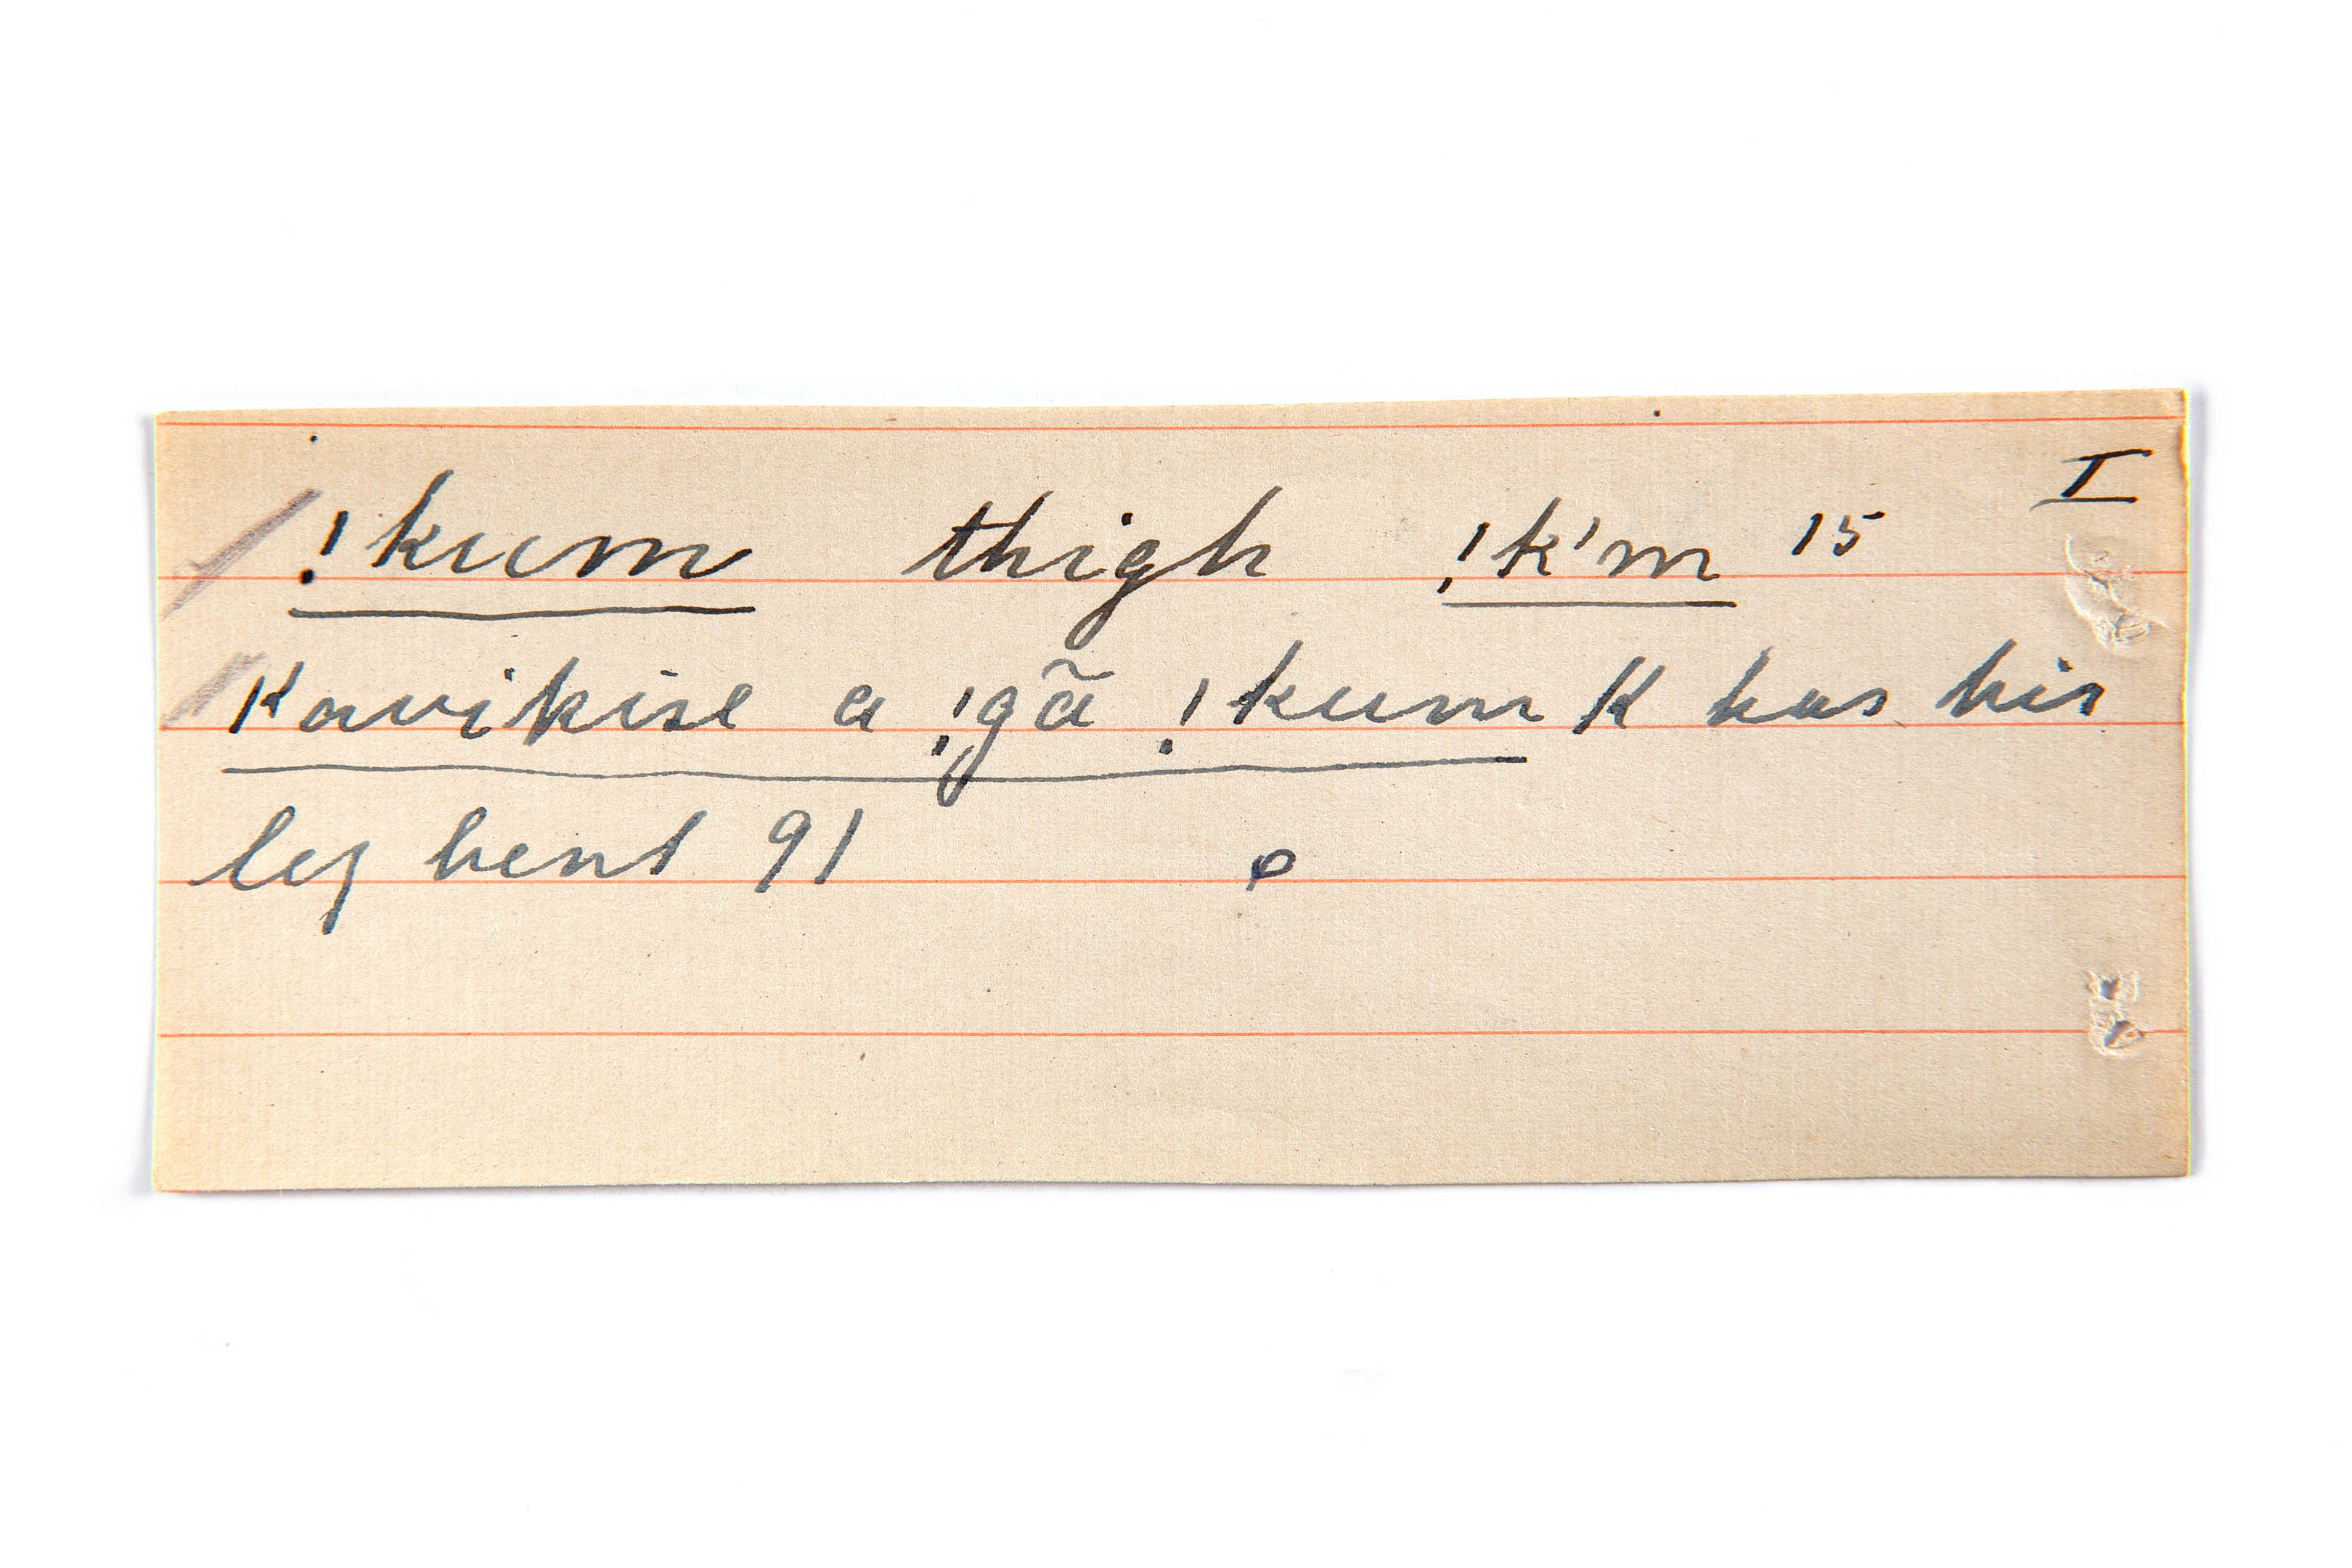 !kum thigh !k'm 15 I
Kavikise a !gã !kum K has his
leg bent 91